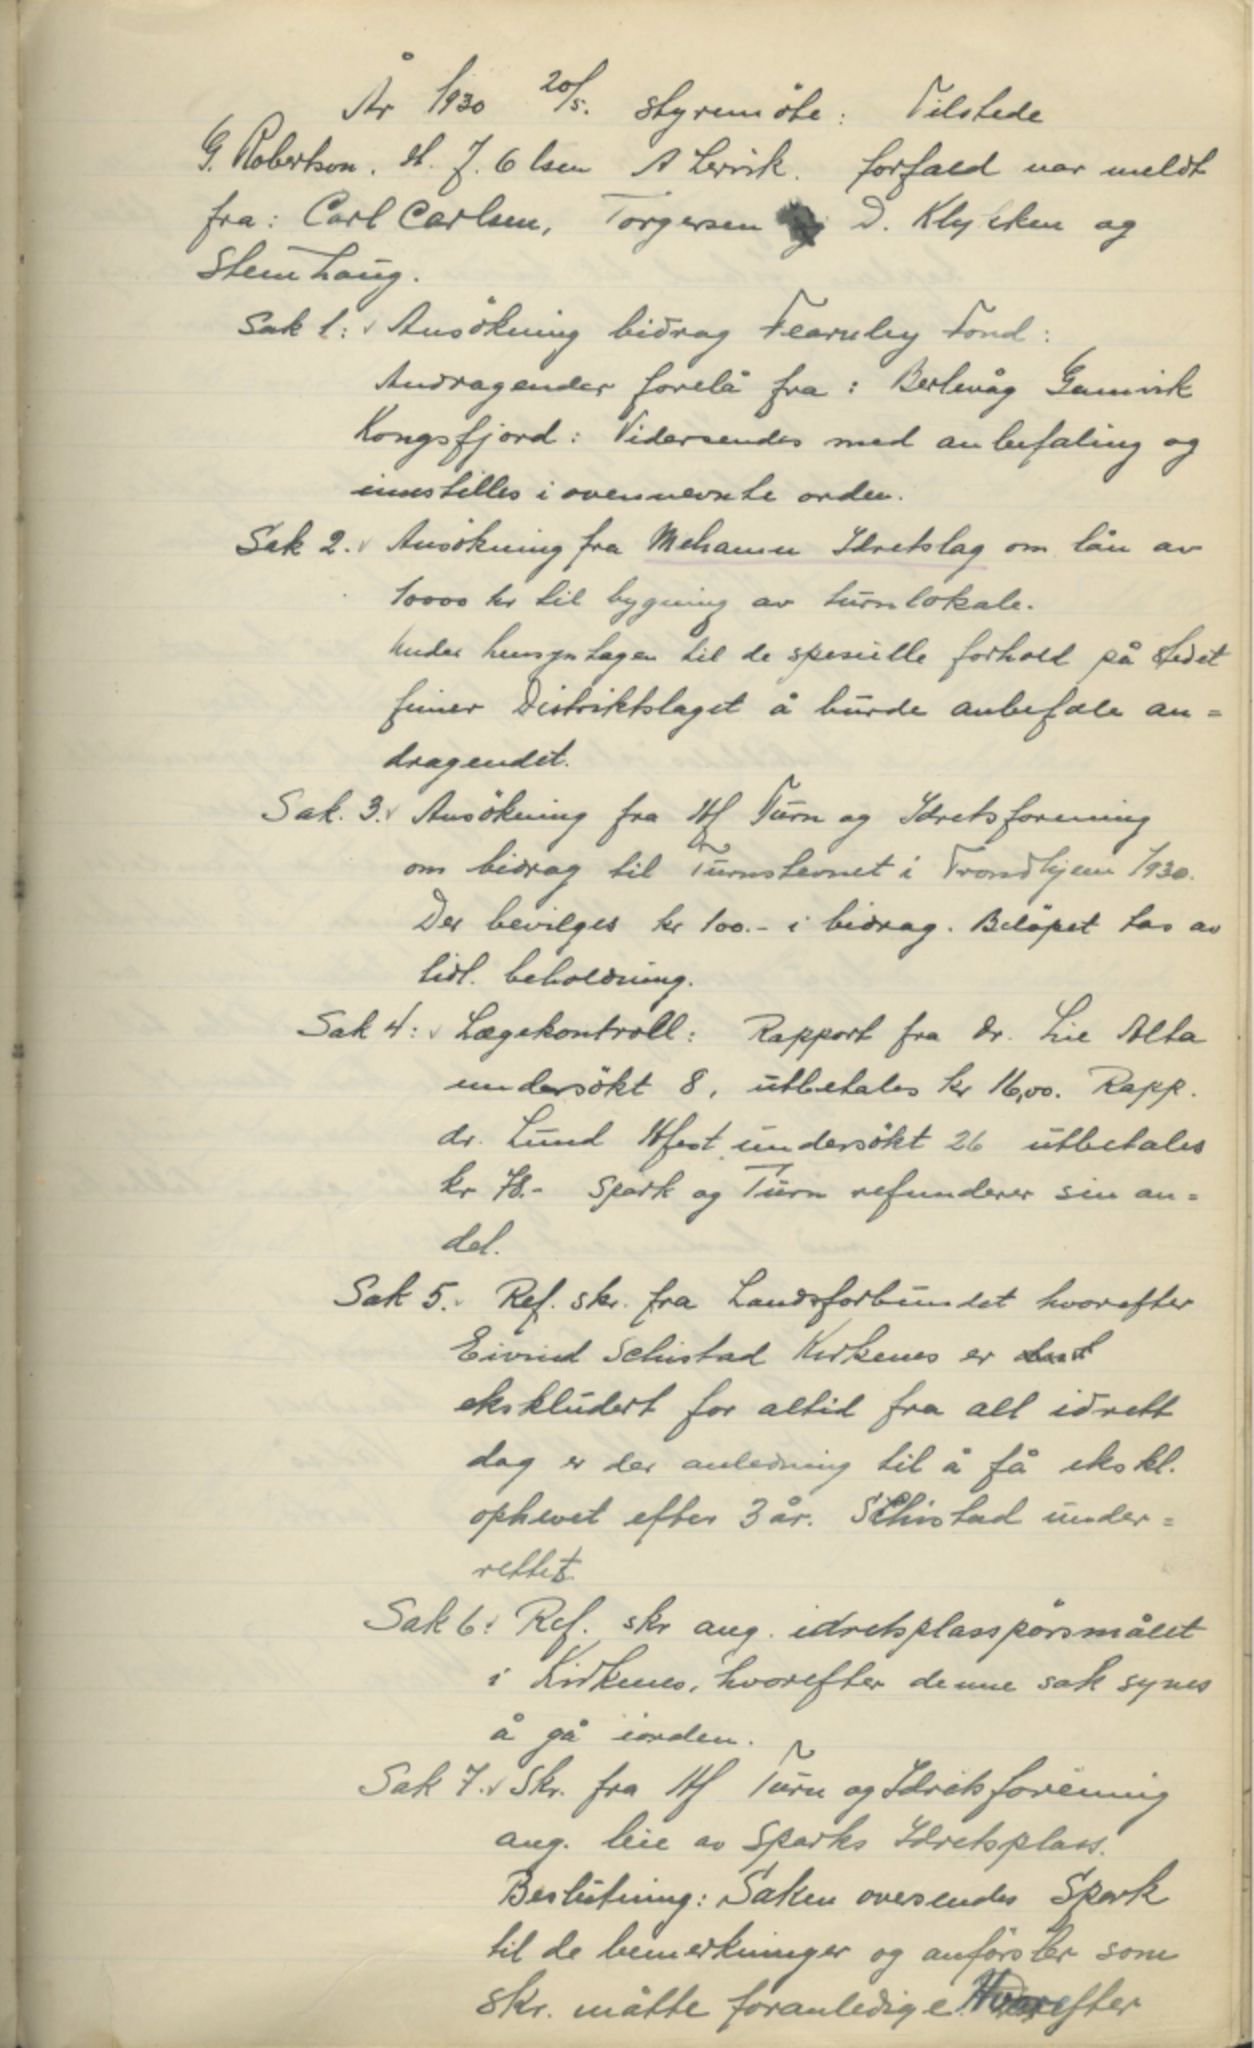 År 1930 20/5. styremöte: Tilstede
G. Robertson. H. J. Olsen A Lervik. forfald var meldt
fra: Carl Carlsen, Torgersen D. Klykken og
Stenhaug.
Sak 1: Ansökning bidrag Fearnley Fond:
Andragender forelå fra: Berlevåg Gamvik
Kongsfjord: Vidersendes med anbefaling og
innstilles i ovennevnte orden.
Sak 2. Ansökning fra Mehamn Idretslag om lån av
10000 kr til bygning av turnlokale.
Under hensyntagen til de spesielle forhold på stedet
finner Distriktslaget å burde anbefale an=
dragendet.
Sak. 3. Ansökning fra Hf Turn og Idretsforening
om bidrag til Turnstevnet i Trondhjem 1930.
Der bevilges kr 100.- i bidrag. Beløpet tas av
tidl. beholdning.
Sak 4: Lægekontroll: Rapport fra dr. Lie Alta
undersökt 8, utbetales kr 16,00. Rapp.
dr. Lund Hfest undersökt 26 utbetales
kr 78.- Spark og Turn refunderer sin an=
del.
Sak 5. Ref. skr. fra Landsforbundet hvorefter
Eivind Schistad Kirkenes er
ekskludert for altid fra all idrett
dog er der anledning til å få ekskl.
ophevet efter 3 år. Schistad under=
rettet.
Sak 6: Ref. skr ang. idretsplasspörsmålet
i Kirkenes, hvorefter denne sak synes
å gå iorden.
Sak 7. Skr. fra Hf Turn og Idretsforening
ang. leie av Sparks Idretsplass.
Beslutning: Saken oversendes Spark
til de bemerkninger og anförsler som
skr. måtte foranledige. Hvorefter